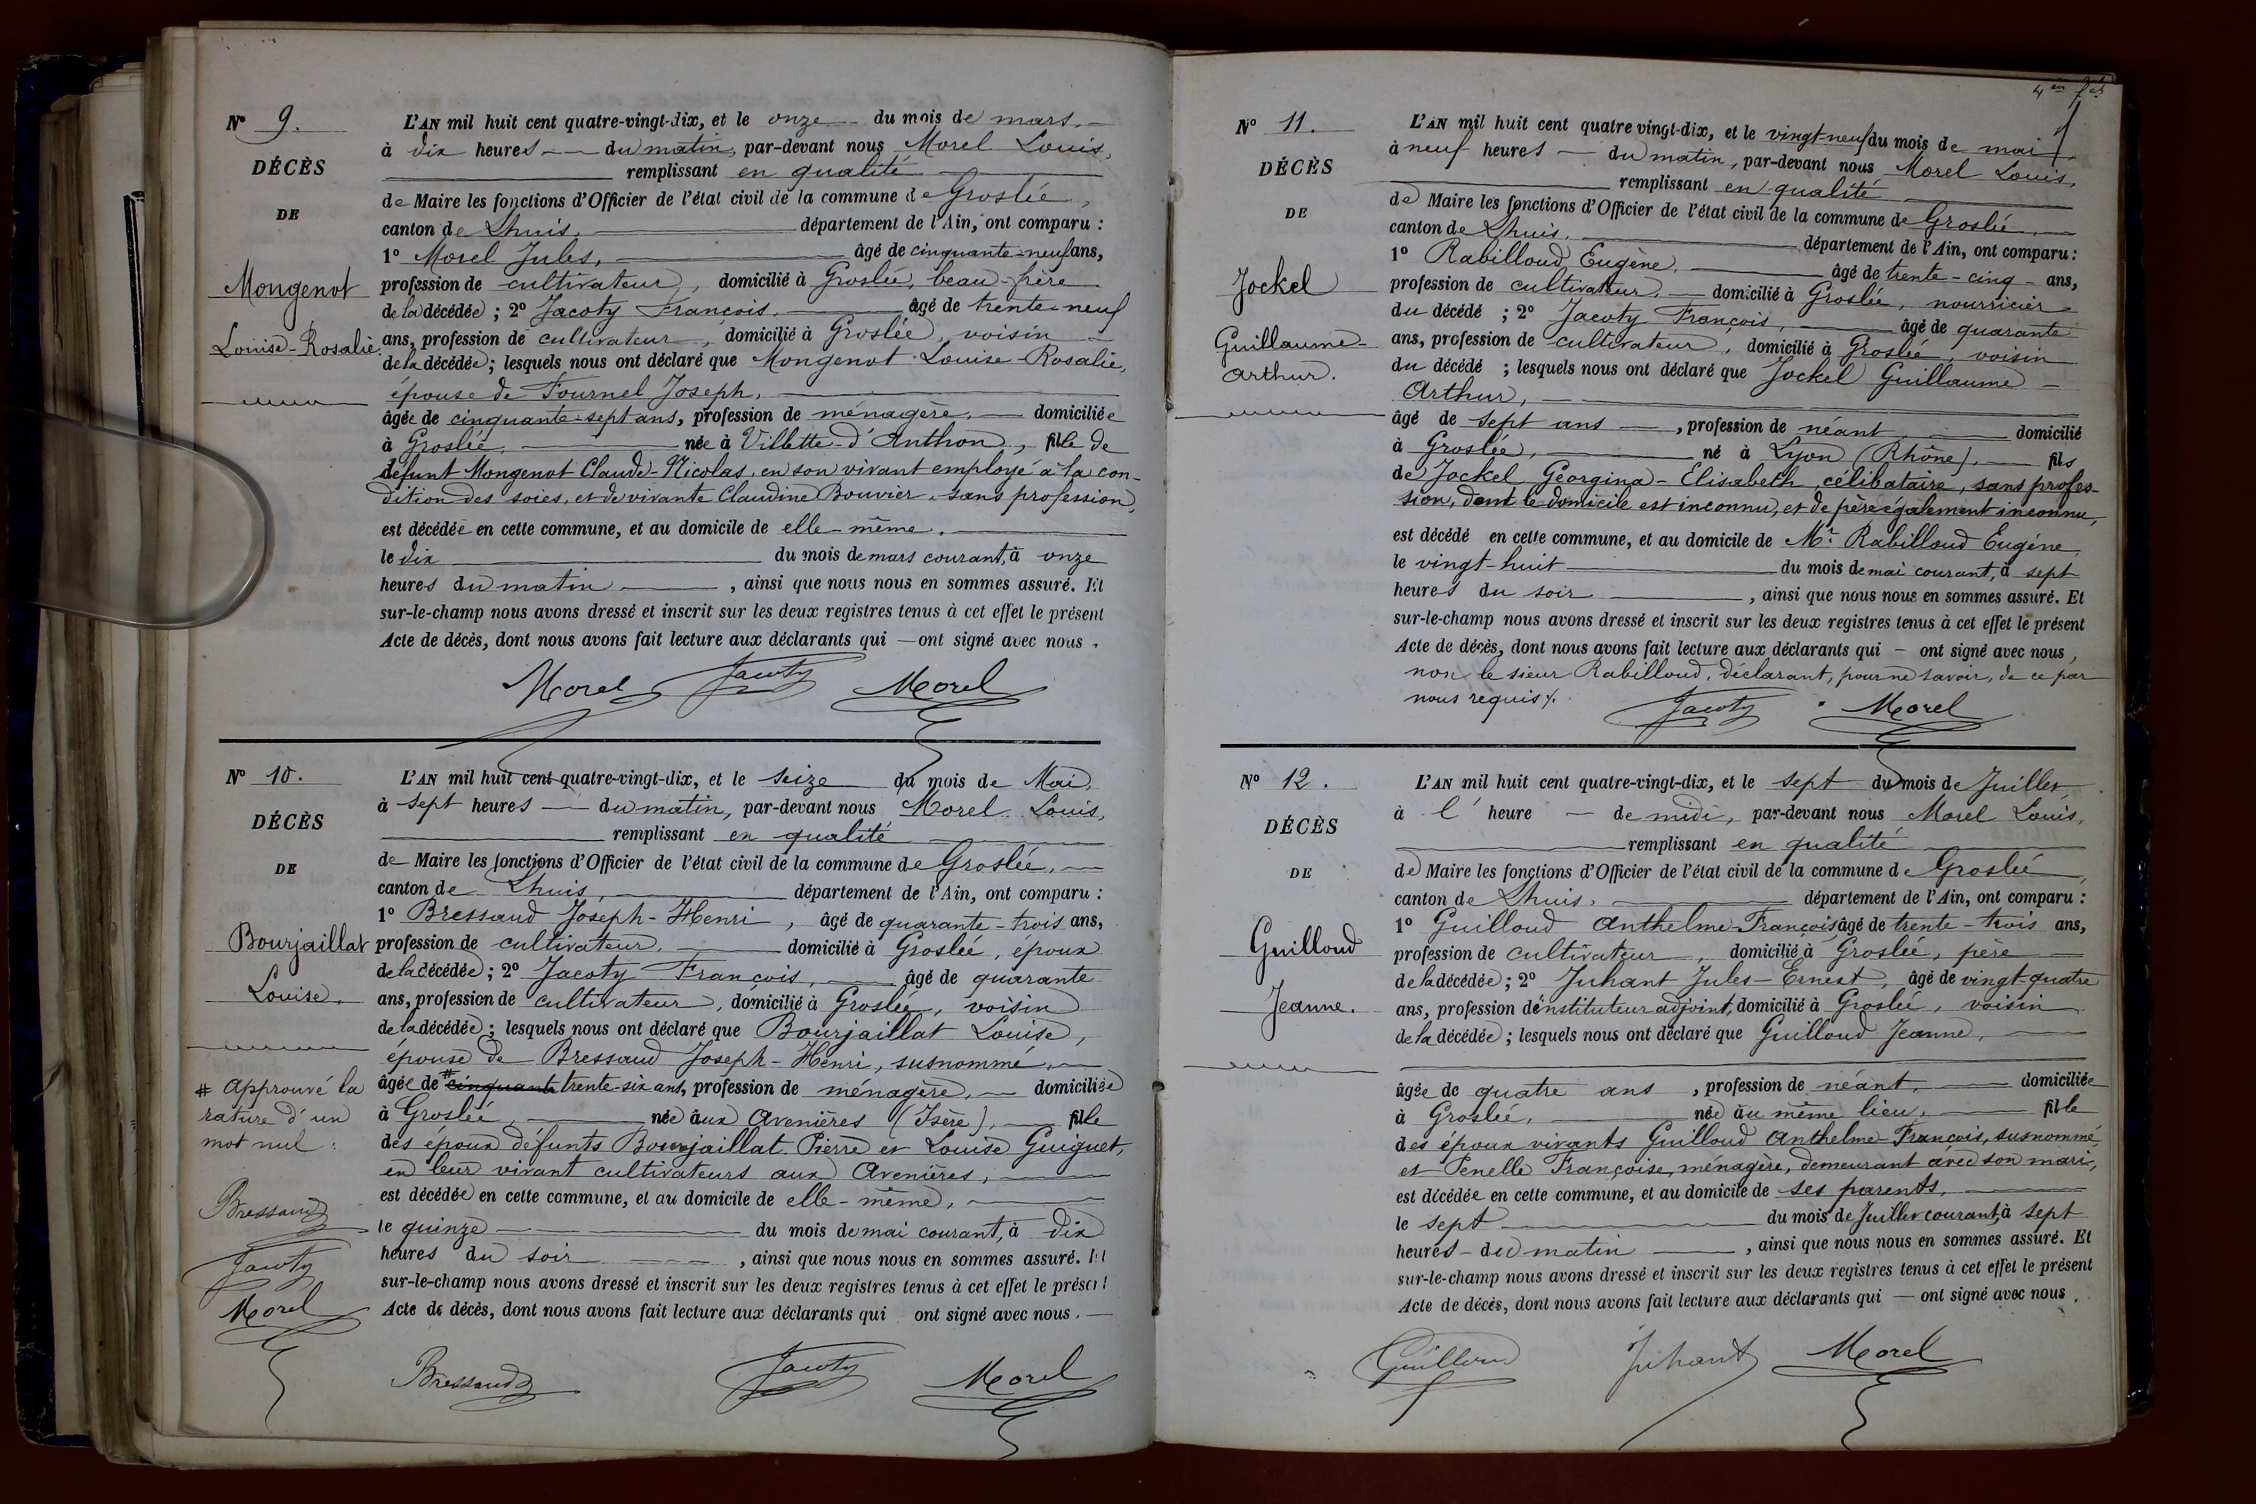 N° 9.
DÉCÈS
DE
Mongenot
Louise-Rosalie
L'AN mil huit cent quatre-vingt-dix, et le onze du mois de mars,
à dix heures du matin, par-devant nous Morel Louis,
remplissant en qualité
de Maire les fonctions d'Officier de l'état civil de la commune de Groslée,
canton de Lhuis, département de l'Ain, ont comparu :
1° Morel Jules, âgé de cinquante-neuf ans,
profession de cultivateur, domicilié à Groslée, beau-frère
de la décédée ; 2° Jacoty François, âgé de trente-neuf
ans, profession de cultivateur, domicilié à Groslée, voisin
de la décédée ; lesquels nous ont déclaré que Mongenot Louise-Rosalie,
épouse de Fournel Joseph,
âgée de cinquante-sept ans, profession de ménagère, domiciliée
à Groslée, née à Villette-d'Anthon, fille de
défunt Mongenot Claude-Nicolas, en son vivant employé à la con-
dition des soies, et de vivante Claudine Bouvier, sans profession,
est décédée en cette commune, et au domicile de elle-même,
le dix du mois de mars courant, à onze
heures du matin, ainsi que nous nous en sommes assuré. Et
sur-le-champ nous avons dressé et inscrit sur les deux registres tenus à cet effet le présent
Acte de décès, dont nous avons fait lecture aux déclarants qui — ont signé avec nous.
Morel Jacoty Morel
N° 10.
DÉCÈS
DE
Bourjaillat
Louise.
# Approuvé la
rature d'un
mot nul :
Bressaud
Jacoty
Morel
L'AN mil huit cent quatre-vingt-dix, et le seize du mois de Mai,
à sept heures du matin, par-devant nous Morel Louis,
remplissant en qualité
de Maire les fonctions d'Officier de l'état civil de la commune de Groslée,
canton de Lhuis, département de l'Ain, ont comparu :
1° Bressaud Joseph-Henri, âgé de quarante-trois ans,
profession de cultivateur, domicilié à Groslée, époux
de la décédée ; 2° Jacoty François, âgé de quarante
ans, profession de cultivateur, domicilié à Groslée, voisin
de la décédée ; lesquels nous ont déclaré que Bourjaillat Louise,
épouse de Bressaud Joseph-Henri, susnommé,
âgée de # cinquante trente-six ans, profession de ménagère, domiciliée
à Groslée, née aux Avenières (Isère), fille
des époux défunts Bourjaillat Pierre et Louise Guiguet,
en leur vivant cultivateurs aux Avenières,
est décédée en cette commune, et au domicile de elle-même,
le quinze du mois de mai courant, à dix
heures du soir, ainsi que nous nous en sommes assuré. Et
sur-le-champ nous avons dressé et inscrit sur les deux registres tenus à cet effet le présent
Acte de décès, dont nous avons fait lecture aux déclarants qui ont signé avec nous.
Bressaud Jacoty Morel
N° 11.
DÉCÈS
DE
Jockel
Guillaume-
Arthur.
L'AN mil huit cent quatre vingt-dix, et le vingt-neuf du mois de mai,
à neuf heures du matin, par-devant nous Morel Louis,
remplissant en qualité
de Maire les fonctions d'Officier de l'état civil de la commune de Groslée,
canton de Lhuis, département de l'Ain, ont comparu :
1° Rabilloud Eugène, âgé de trente-cinq ans,
profession de cultivateur, domicilié à Groslée, nourricier
du décédé ; 2° Jacoty François, âgé de quarante
ans, profession de cultivateur, domicilié à Groslée, voisin
du décédé ; lesquels nous ont déclaré que Jockel Guillaume-
Arthur,
âgé de sept ans, profession de néant, domicilié
à Groslée, né à Lyon (Rhône), fils
de Jockel Géorgina-Elisabeth, célibataire, sans profes-
sion, dont le domicile est inconnu, et de père également inconnu,
est décédé en cette commune, et au domicile de Mr Rabilloud Eugène,
le vingt-huit du mois de mai courant, à sept
heures du soir, ainsi que nous nous en sommes assuré. Et
sur-le-champ nous avons dressé et inscrit sur les deux registres tenus à cet effet le présent
Acte de décès, dont nous avons fait lecture aux déclarants qui — ont signé avec nous,
non le sieur Rabilloud, déclarant, pour ne savoir, de ce par
nous requis.
Jacoty Morel
N° 12.
DÉCÈS
DE
Guilloud
Jeanne.
L'AN mil huit cent quatre-vingt-dix, et le sept du mois de Juillet
à l'heure de midi, par-devant nous Morel Louis,
remplissant en qualité
de Maire les fonctions d'Officier de l'état civil de la commune de Groslée,
canton de Lhuis, département de l'Ain, ont comparu :
1° Guilloud Anthelme-François, âgé de trente-trois ans,
profession de cultivateur, domicilié à Groslée, père
de la décédée ; 2° Juhant Jules-Ernest, âgé de vingt-quatre
ans, profession d'instituteur adjoint, domicilié à Groslée, voisin
de la décédée ; lesquels nous ont déclaré que Guilloud Jeanne,
âgée de quatre ans, profession de néant, domiciliée
à Groslée, née au même lieu, fille
des époux vivants Guilloud Anthelme-François, susnommé,
et Penelle Françoise, ménagère, demeurant avec son mari,
est décédée en cette commune, et au domicile de ses parents,
le sept du mois de Juillet courant, à sept
heures du matin, ainsi que nous nous en sommes assuré. Et
sur-le-champ nous avons dressé et inscrit sur les deux registres tenus à cet effet le présent
Acte de décès, dont nous avons fait lecture aux déclarants qui — ont signé avec nous.
Guilloud Juhant Morel